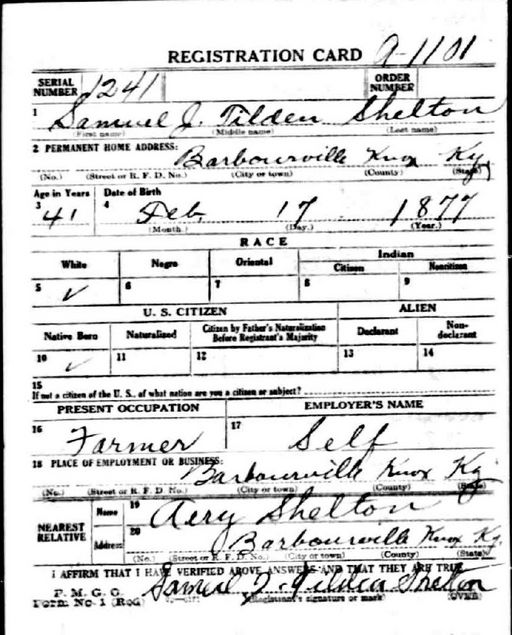 REGISTRATION CARD A-1101
SERIAL NUMBER 1241 ORDER NUMBER
1 Samuel J. Tilden Shelton
(First name) (Middle name) (Last name)
2 PERMANENT HOME ADDRESS: Barbourville Knox Ky
(No.) (Street or R. F. D. No.) (City or town) (County) (State)
Age in Years Date of Birth
3 41 4 Feb. 17 1877
(Month.) (Day.) (Year.)
RACE
White Negro Oriental Indian
Citizen Noncitizen
5 ✓ 6 7 8 9
U. S. CITIZEN ALIEN
Native Born Naturalized Citizen by Father's Naturalization Before Registrant's Majority Declarant Non-declarant
10 ✓ 11 12 13 14
15
If not a citizen of the U. S., of what nation are you a citizen or subject?
PRESENT OCCUPATION EMPLOYER'S NAME
16 Farmer 17 Self
18 PLACE OF EMPLOYMENT OR BUSINESS: Barbourville Knox Ky
(No.) (Street or R. F. D. No.) (City or town) (County) (State)
NEAREST RELATIVE Name 19 Aery Shelton
Address 20 Barbourville Knox Ky
(No.) (Street or R. F. D. No.) (City or town) (County) (State)
I AFFIRM THAT I HAVE VERIFIED ABOVE ANSWERS AND THAT THEY ARE TRUE
P. M. G. O.
Form No. 1 (Red) Samuel J. Tilden Shelton
(Registrant's signature or mark) (OVER)